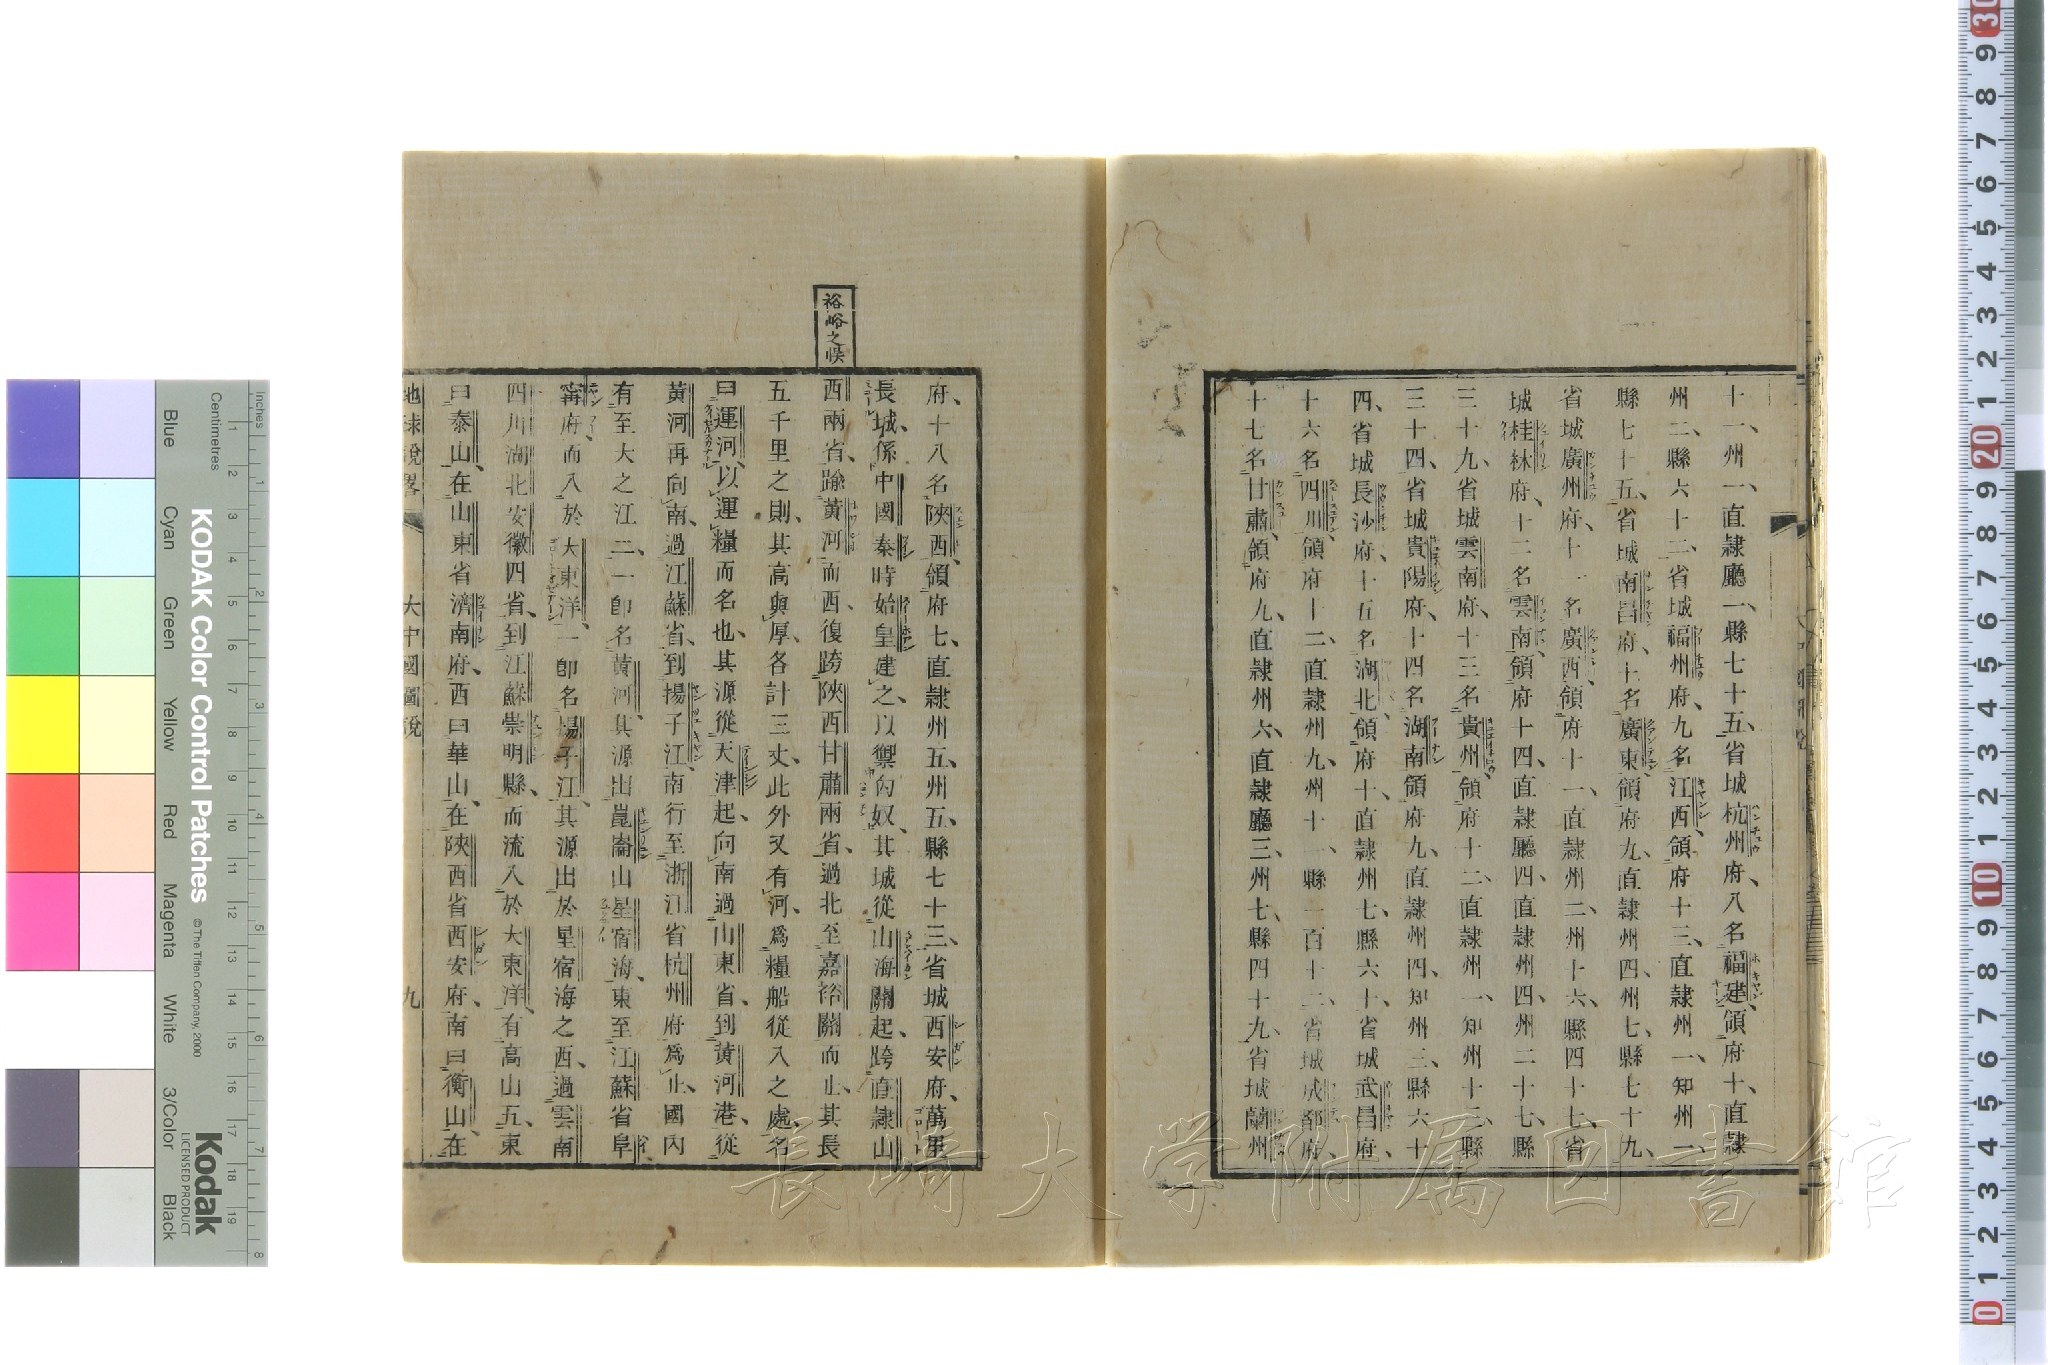 十一、州一、直隷廳一、縣七十五、省城杭州府、八名福建、領府十、直隷
州二、縣六十二、省城福州府、九名江西、領府十三、直隷州一、知州一、
縣七十五、省城南昌府、十名廣東、領府九、直隷州四、州七、縣七十九、
省城廣州府、十一名廣西、領府十一、直隷州二、州十六、縣四十七、省
城桂林府、十二名雲南、領府十四、直隷廳四、直隷州四、州二十七、縣
三十九、省城雲南府、十三名貴州、領府十二、直隷州一、知州十三、縣
三十四、省城貴陽府、十四名湖南、領府九、直隷州四、知州三、縣六十
四、省城長沙府、十五名湖北、領府十、直隷州七、縣六十、省城武昌府、
十六名四川、領府十二、直隷州九、州十一、縣一百十二、省城成都府、
十七名甘肅、領府九、直隷州六、直隷廳三、州七、縣四十九、省城蘭州
裕峪之悞
府、十八名陝西、領府七、直隷州五、州五、縣七十三、省城西安府、萬里
長城、係中國秦時始皇建之、以禦匈奴、其城從山海關起、跨直隷山
西兩省、踰黃河而西、復跨陝西甘肅兩省、過北至嘉裕關而止、其長
五千里之則、其高與厚、各計三丈、此外又有河、爲糧船從入之處、名
曰運河、以運糧而名也、其源從天津起、向南過山東省、到黃河港、從
黃河再向南、過江蘇省、到揚子江、南行至浙江省杭州府爲止、國內
有至大之江二、一卽名黃河、其源出崑崙山星宿海、東至江蘇省阜
寗府而入於大東洋、一卽名揚子江、其源出於星宿海之西、過雲南
四川湖北安徽四省、到江蘇崇明縣、而流入於大東洋、有高山五、東
曰泰山、在山東省濟南府、西曰華山、在陝西省西安府、南曰衡山、在
地球說畧 大中國圖說 九
長崎大学附属図書館
KODAK Color Control Patches
© The Tiffen Company, 2000
Kodak
LICENSED PRODUCT
Inches
Centimetres
Blue
Cyan
Green
Yellow
Red
Magenta
White
3/Color
Black